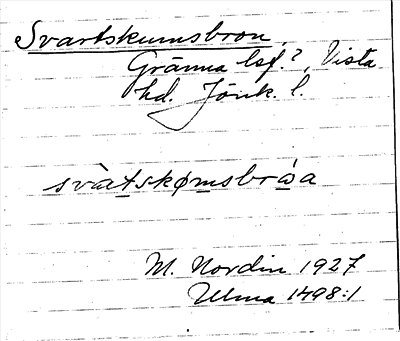 Svartskumsbron,
Gränna lsf.?, Vista
hd. Jönk. l.
svàtskømsbrωa
M. Nordin 1927
Ulma 1498:1